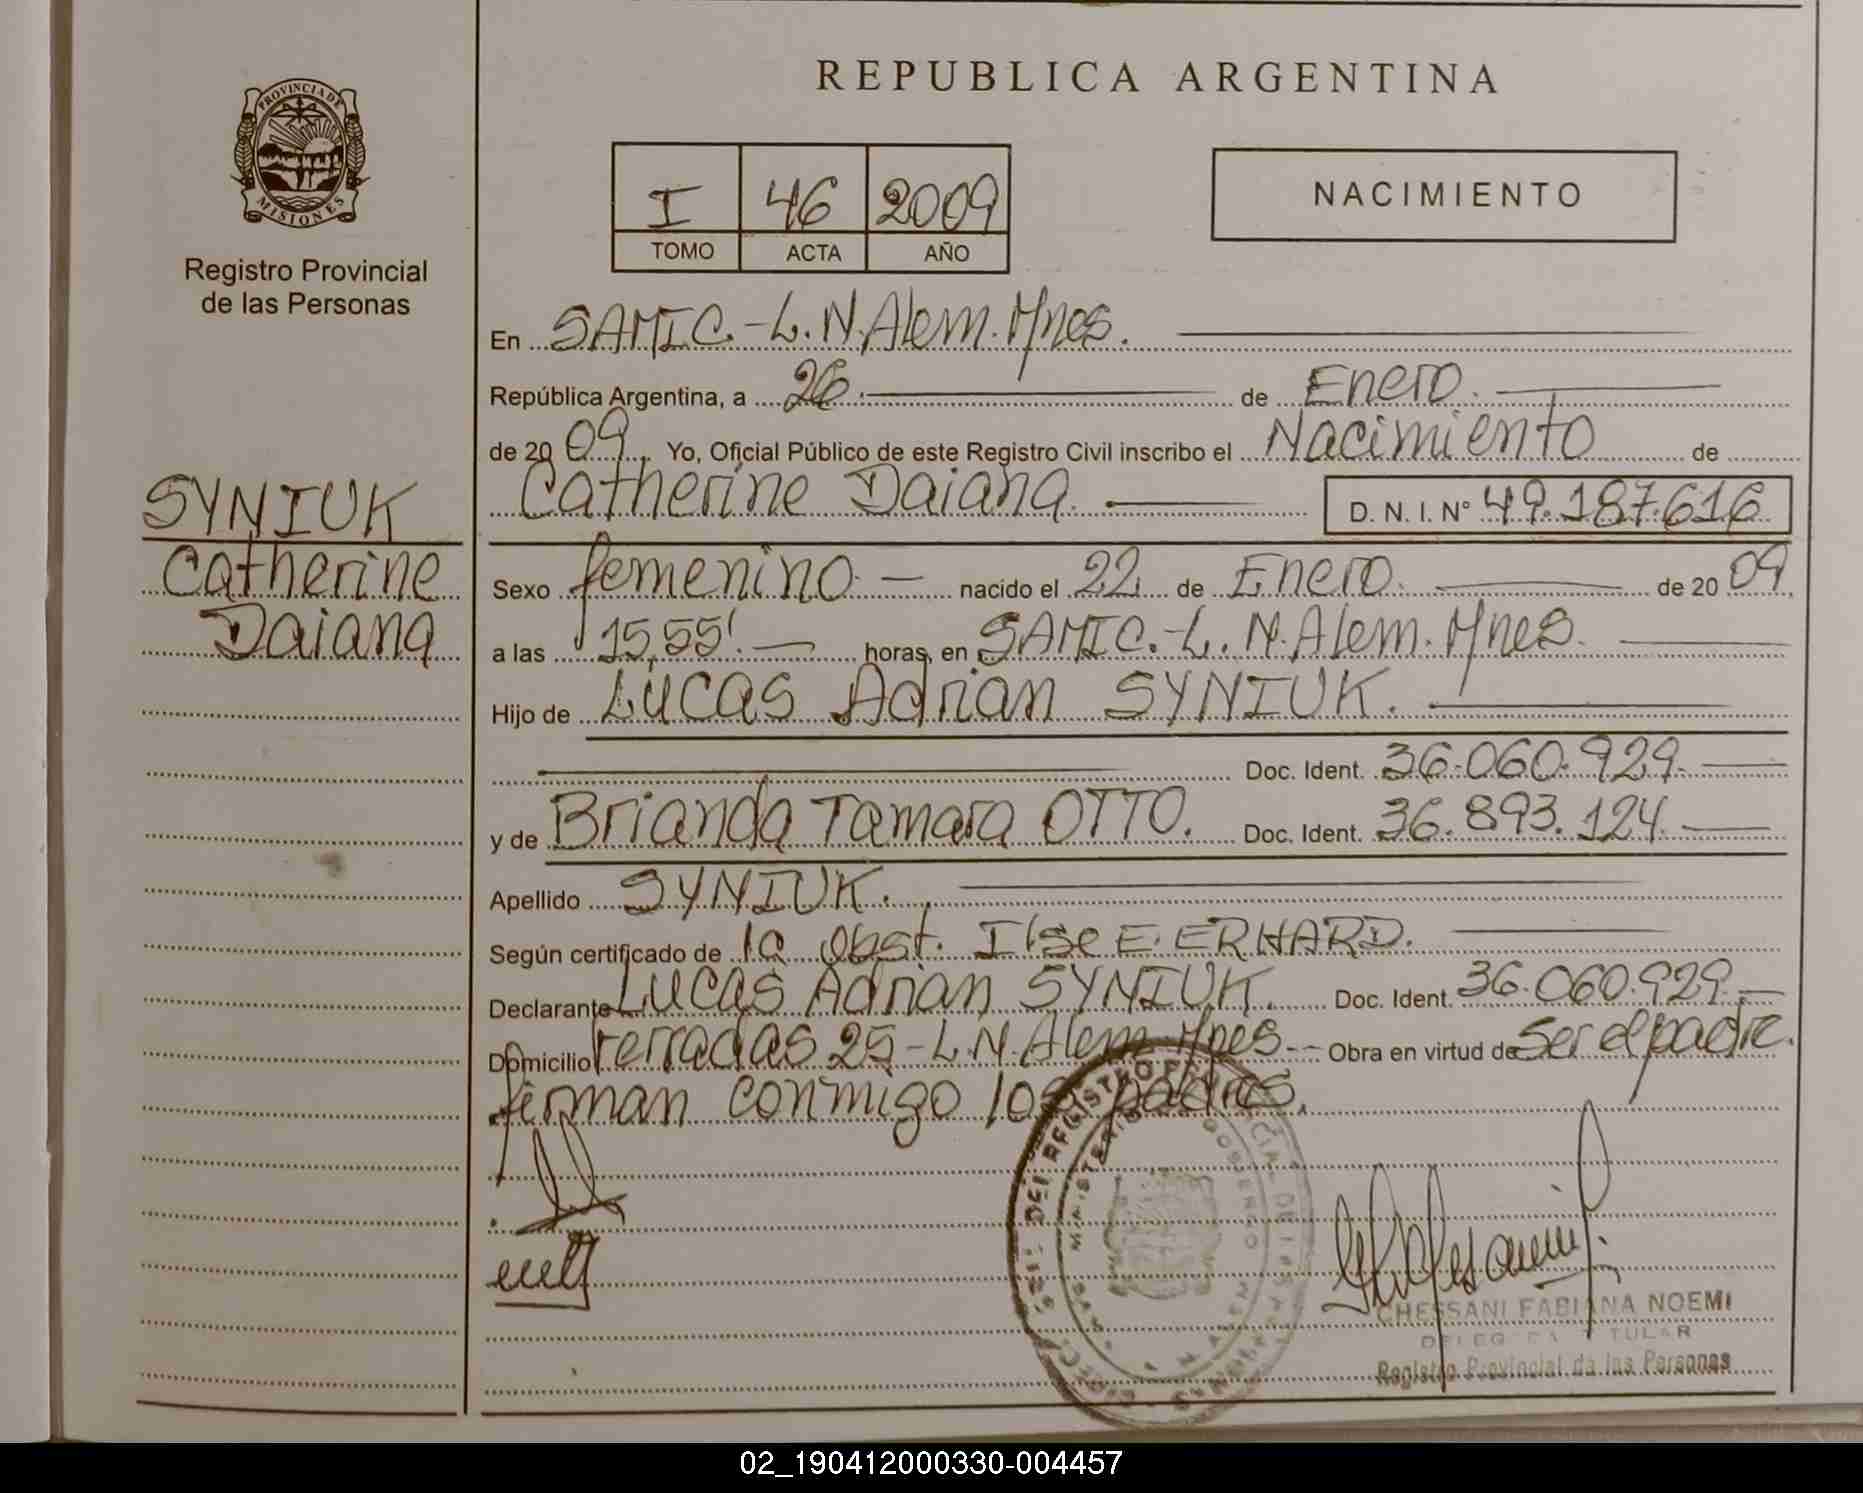 REPUBLICA ARGENTINA
PROVINCIA DE
MISIONES
Registro Provincial
de las Personas
I 46 2009
TOMO ACTA AÑO
NACIMIENTO
En SAMIC.-L.N.Alem.Mnes.
República Argentina, a 26. de Enero.
de 2009. Yo, Oficial Público de este Registro Civil inscribo el Nacimiento de
Catherine Daiana. D. N. I. N° 49.187.616
SYNIUK
Catherine
Daiana
Sexo femenino. — nacido el 22. de Enero. de 20 09
a las 15,55'. — horas, en SAMIC.-L.N.Alem.Mnes.
Hijo de Lucas Adrian SYNIUK.
Doc. Ident. 36.060.929.
y de Brianda Tamara OTTO. Doc. Ident. 36.893.124.
Apellido SYNIUK.
Según certificado de la Obst. Ilse E. ERHARD.
Declarante Lucas Adrian SYNIUK. Doc. Ident. 36.060.929.
Domicilio Terradas 25-L.N.Alem.Mnes-- Obra en virtud de Ser el padre.
firman conmigo los padres.
CHESSANI FABIANA NOEMI
Registro Provincial de las Personas
02_190412000330-004457